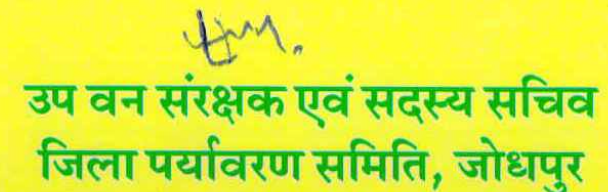 उप वन संरक्षक एवं सदस्य सचिव
जिला पर्यावरण समिति, जोधपुर